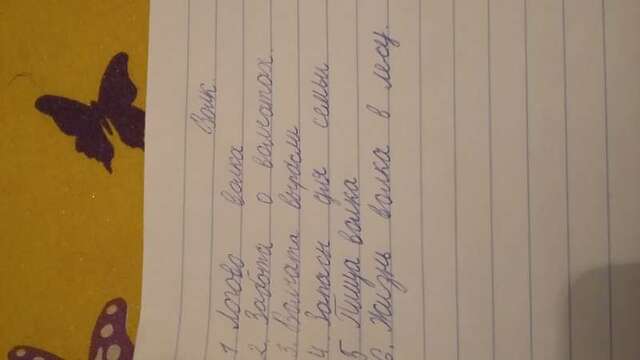 Волк.
1 Логово волка
2. Забота о волчатах.
3. Волчата выросли
4. Запасы для семьи
5 Пища волка
6. Жизнь волка в лесу.